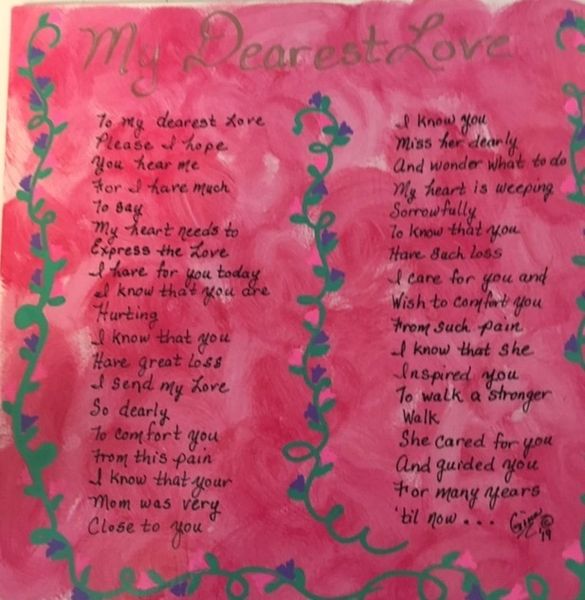 My Dearest Love
To my dearest Love
Please I hope
You hear me
For I have much
To say
My heart needs to
Express the Love
I have for you today
I know that you are
Hurting
I know that you
Have great loss
I send my Love
So dearly
To comfort you
From this pain
I know that your
Mom was very
Close to you
I know you
Miss her dearly
And wonder what to do
My heart is weeping
Sorrowfully
To know that you
Have such loss
I care for you and
Wish to comfort you
From such pain
I know that she
Inspired you
To walk a stronger
Walk
She cared for you
And guided you
For many years
'til now...
Gina © '19